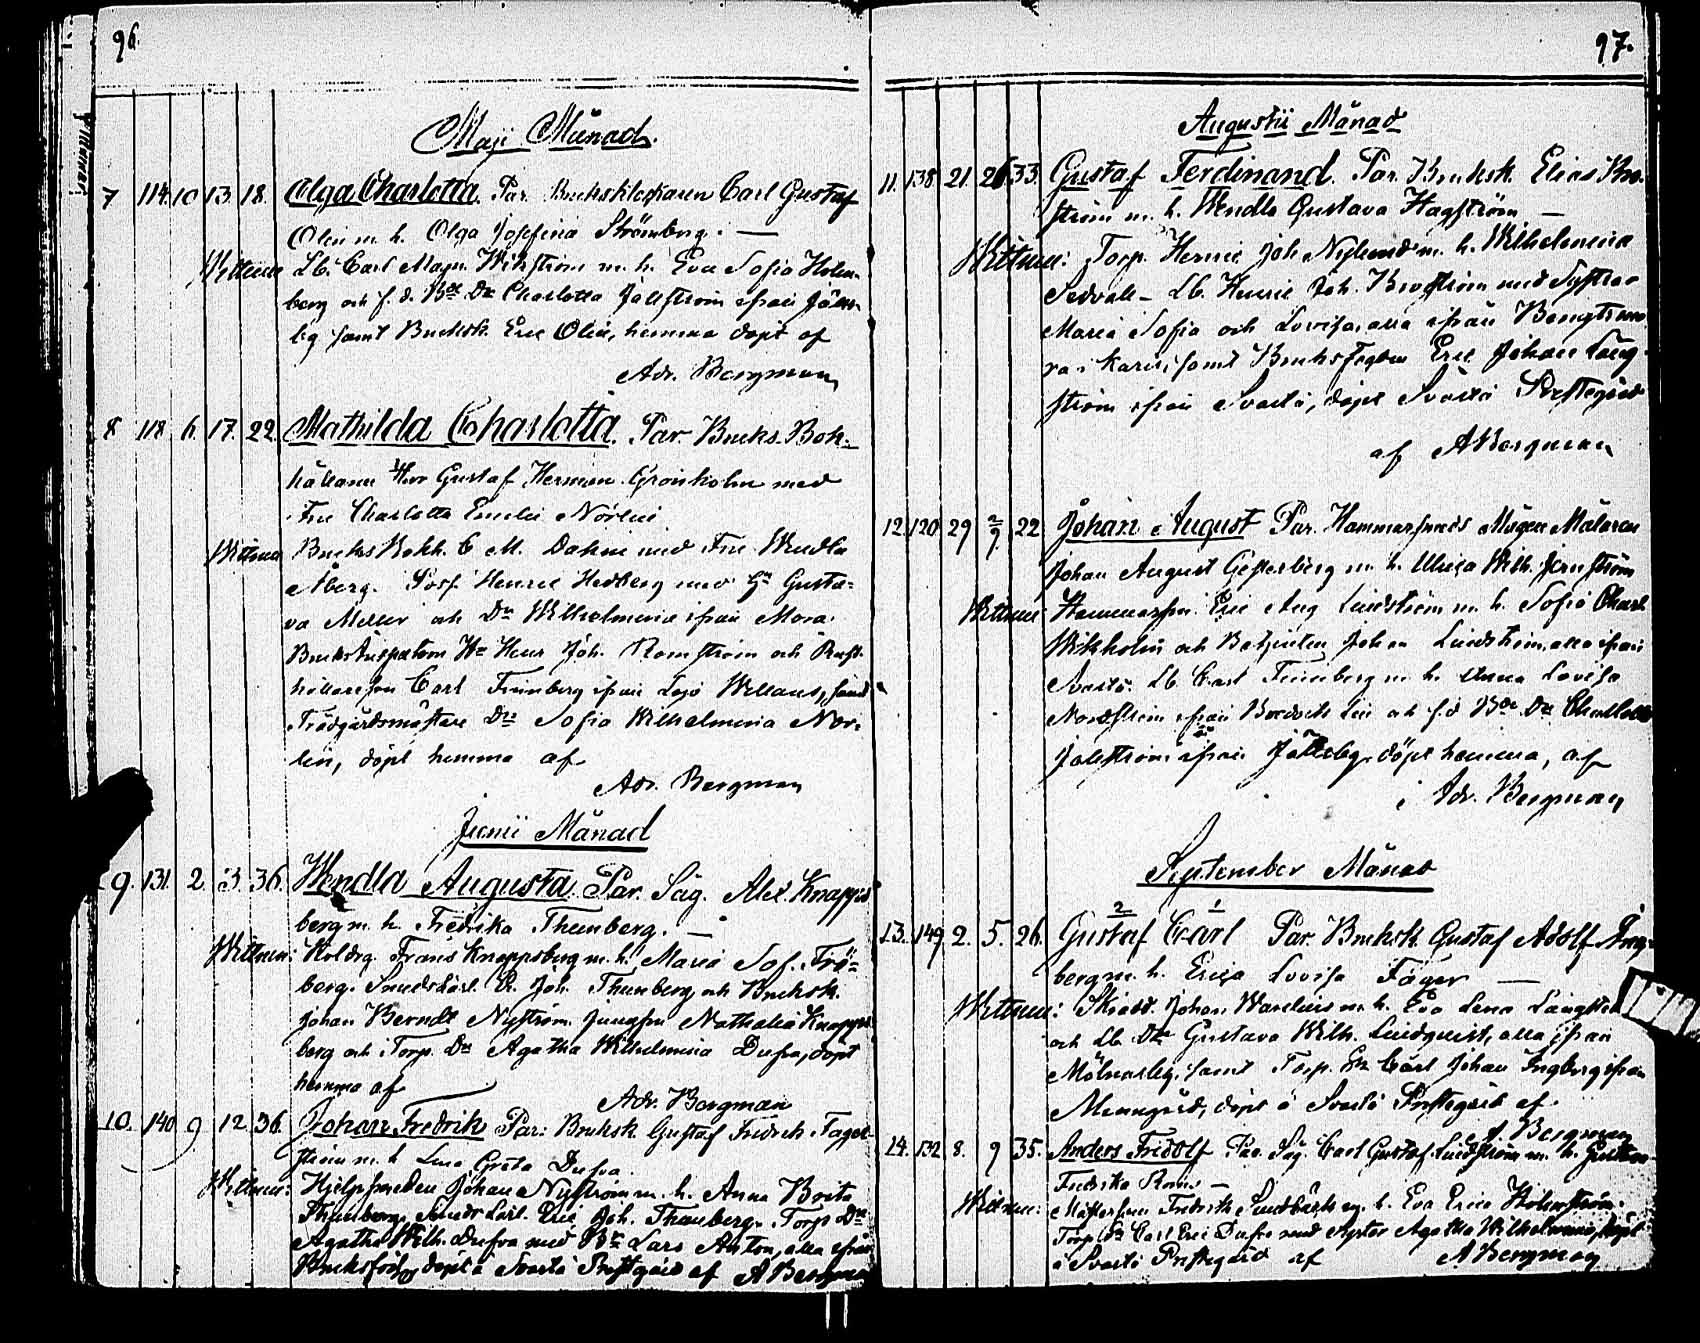 96.
Maji Månad.
7 114. 10 13. 18. Olga Charlotta. Par. Bruksklockaren Carl Gustaf
Olin m. h. Olga Josefina Strömberg. —
Wittnen Lb. Carl Magn. Wikström m. h. Eva Sofia Holm-
berg och f. d. Bde Dr Charlotta ifrån
by samt Bruksk. Eric Olin, hemma döpt af
Adr. Bergman
8 118 6. 17. 22. Mathilda Charlotta. Par. Bruks. Bok-
hållaren Herr Gustaf Herman Grönholm med
Fru Charlotta Emelie Norlin
Wittnen Bruks Bokh. C. M. Dahm med Fru Wendla
Åberg. Henric Hedberg med Gusta-
va och Dr Wilhelmina ifrån Mora
Bruks Inspektorn Joh. Romström och
hållaresson Carl Finnberg ifrån Lojo Willans, samt
Trädgårdsmästare Dr Sofia Wilhelmina Nor-
lin, döpt hemma af
Adr. Bergman
Junii Månad
9. 131. 2. 3. 36. Wendla Augusta. Par. Säg. Alex. Knapps
berg m. h. Fredrika Thunberg. —
Wittnen: Koldrg. Frans Knappsberg m. h. Maria Sof. Frö-
berg. Smeds Lärl. E. Joh. Thunberg och Bruksk.
Johan Berndt Nyström. Jungfru Nathalia Knapps
berg och Torp. Dr Agatha Wilhelmina Dufva, döpt
hemma af
Adr. Bergman
10. 140 9 12 36. Johan Fredrik Par: Bruksk. Gustaf Fredrik Fager-
ström m. h. Lena Greta Dufva.
Wittnen: Hjelpsmeden Johan Nyström m. h. Anna Brita
Thunberg, Smeds Lärl. Eric Joh. Thunberg. Torp. Dr
Agatha Wilh. Dufva med Br Lars Anton, alla ifrån
döpt i Svartå Prestgård af A Bergman
97.
Augustii Månad
11. 138. 21. 26. 33. Gustaf Ferdinand. Par. Bruksk. Elias Bro-
ström m. h. Wendla Gustava Hagström —
Wittnen: Torp. Henric Joh Nylund m. h. Wilhelmina
Sedvall – Lb. Henric Joh. Broström med Systrar
Maria Sofia och Lovisa, alla ifrån Bengtsmo
ra i Karis, samt Bruks Eric Johan Läng-
ström ifrån Svartå, döpt Svartå Prestegård
af A Bergman
12. 120. 29 2/9 22 Johan August Par. Hammarsmeds Mågen Målaren
Johan August Gesterberg m. h. Ulrica Wilh. Jernström
Wittnen Hammarsm. Eric Aug Lindström m. h. Sofia Charl.
Wikholm och Betjenten Johan Lindström, alla ifrån
Svartå. Lb Carl Finnberg m. h. Anna Lovisa
Nordström ifrån och f. d. Bde Dr Charlotta
ifrån döpt hemma, af
Adr. Bergman
September Månad
13. 149. 2. 5. 26. Gustaf 2 Carl 1 Par. Bruksk. Gustaf Adolf Ing-
berg m. h. Erica Lovisa Fager —
Wittnen: Johan Warelius m. h. Eva Lena
och Lb. Dr Gustava Wilh. Lindquist, alla ifrån
Mölnarby, samt Torp. Carl Johan Ingberg ifrån
döpt å Svartå Prestegård af
A Bergman
14. 132 8. 9 35. Anders Fridolf Par. Säg. Carl Gustaf Lindström m. h. Gustava
Fredrika —
Wittnen: Fredrik m. h. Eva Erica Holmström.
Torp Carl Eric Dufva med Syster Agatha Wilhelmina, döpt
i Svartå Prestegård af A Bergman